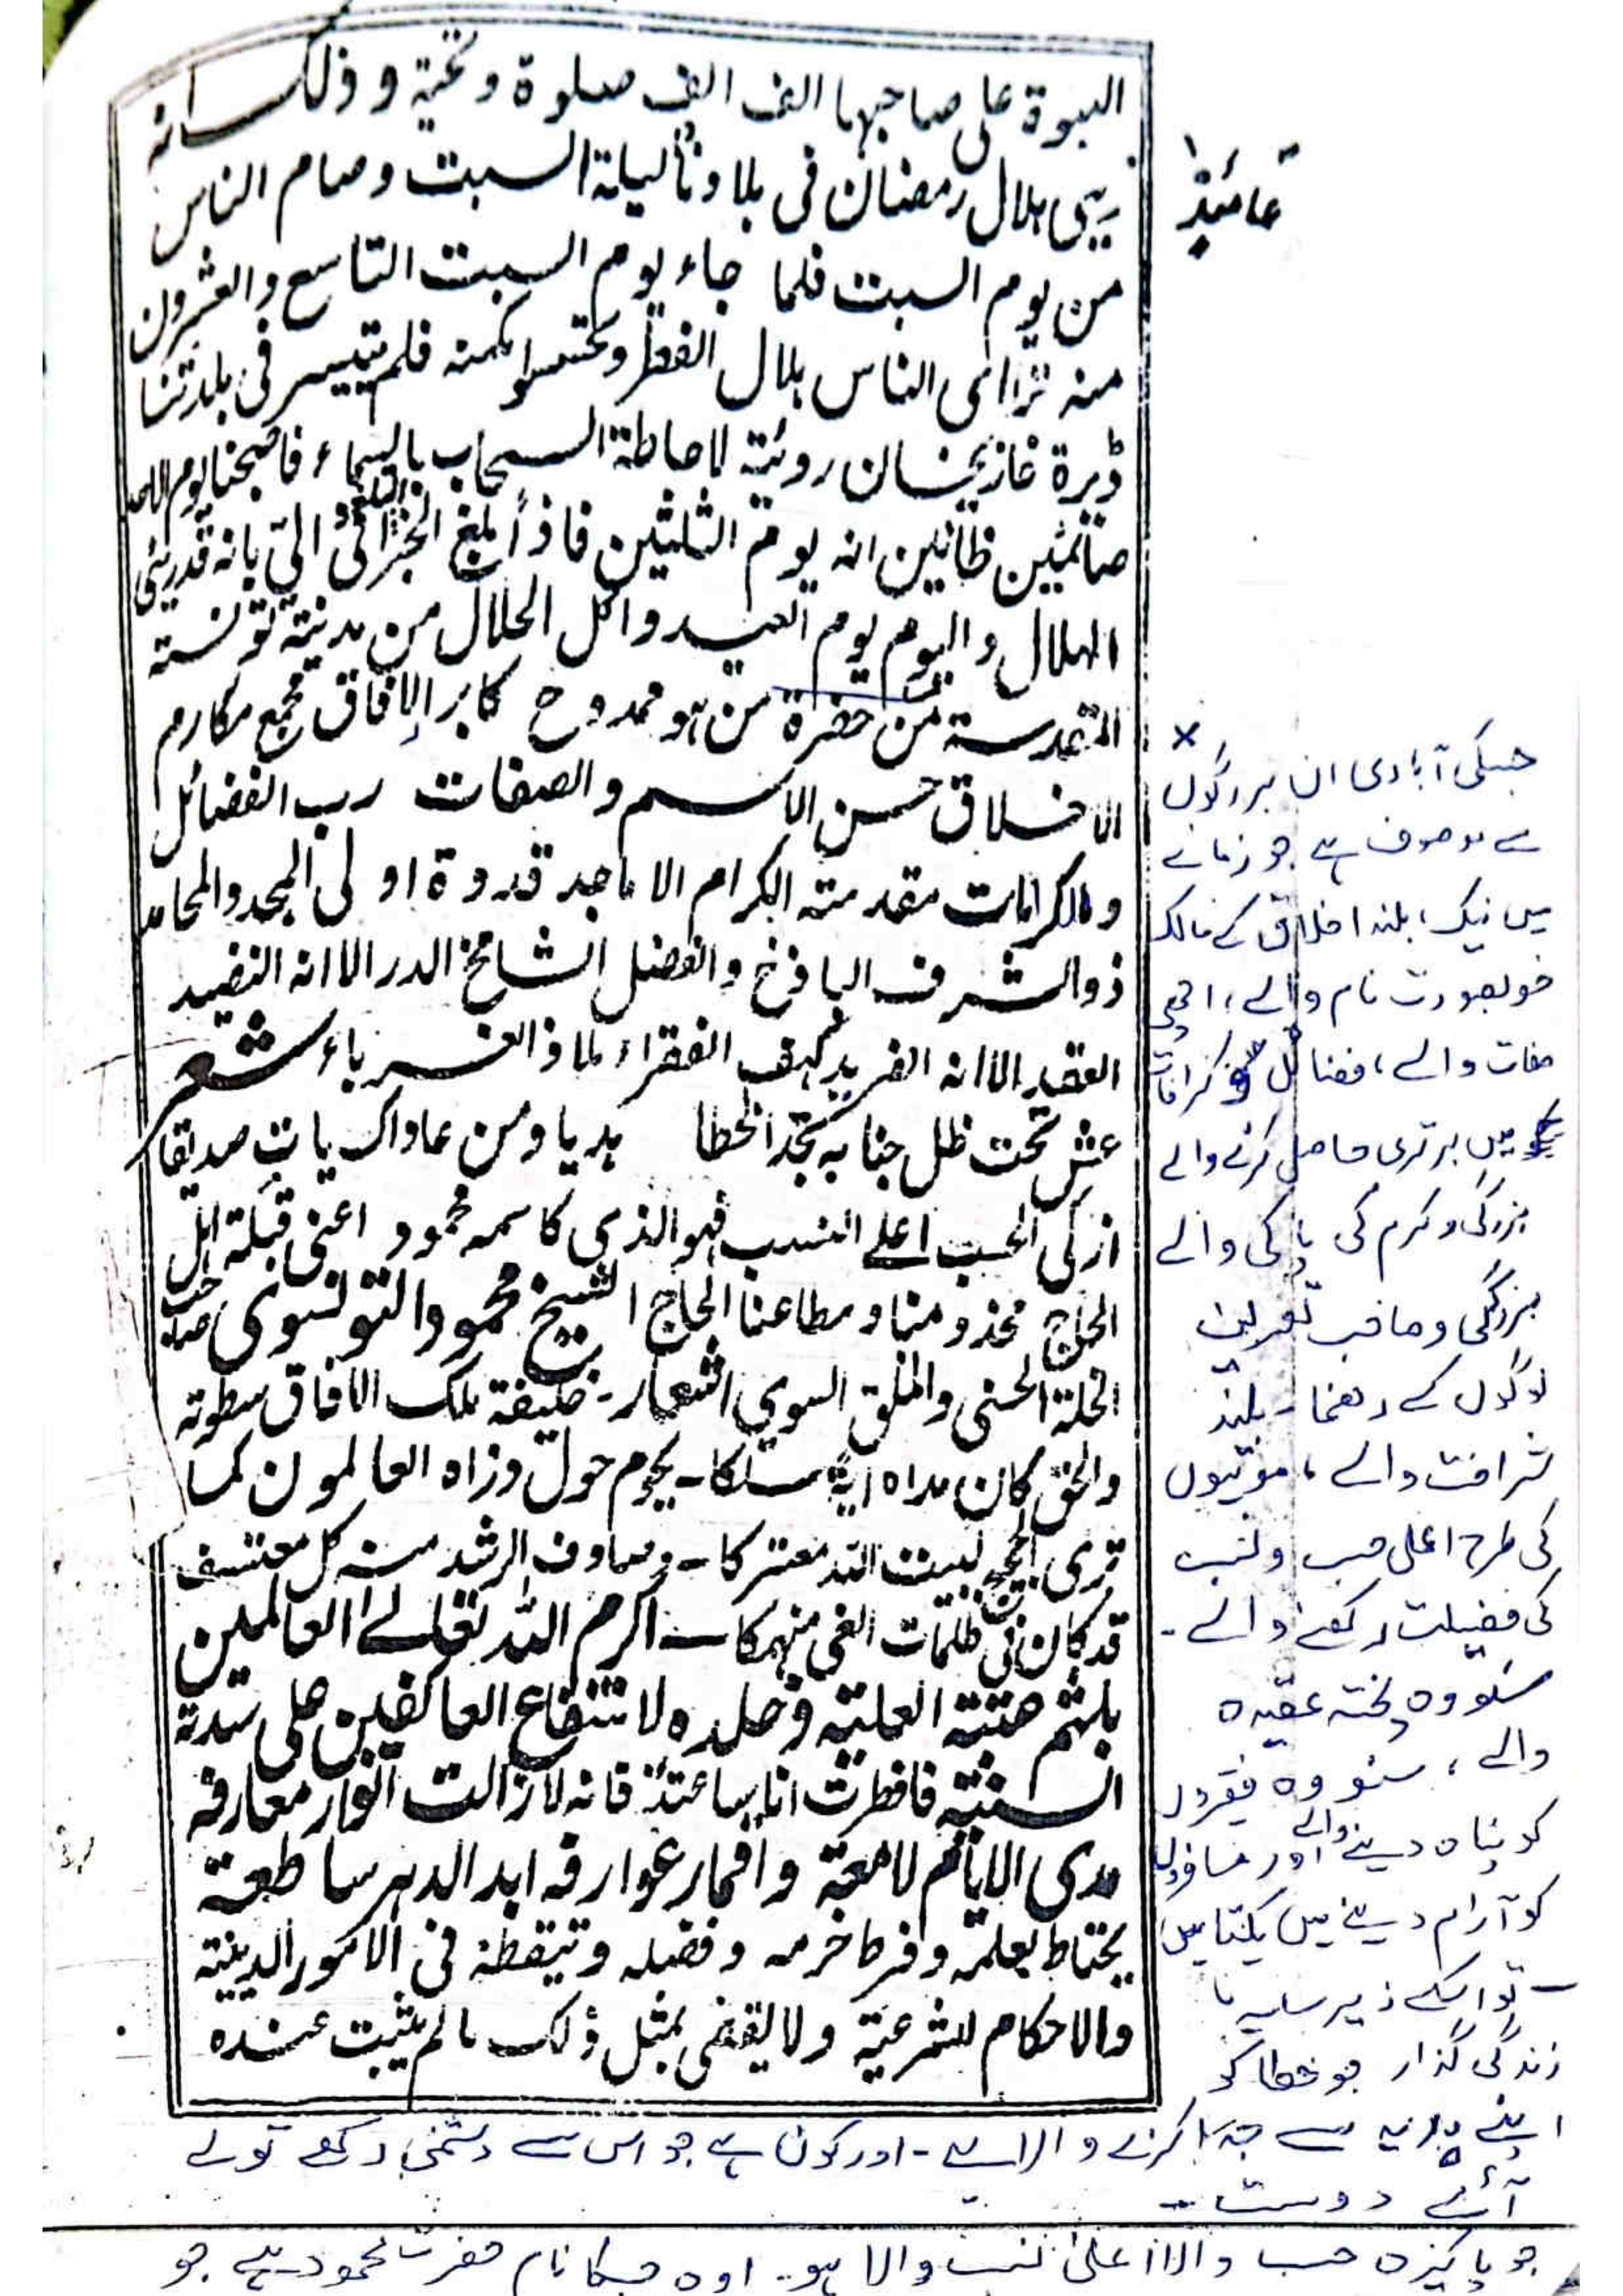 النبوة على صاحبها الف الف صلوة وتحية و ذلك انه
ريى ہلال رمضان فى بلادنا ليلة السبت وصام الناس
من يوم السبت فلما جاء يوم السبت التاسع والعشرون
منه تراآى الناس ہلال الفطر و فلم يتيسر فى بلدتنا
ڈيرة غازيخان رويته لاحاطة السحاب بالسماء فاصبحنا يوم الاحد
صائمين ظانين انه يوم الثلثين فاذا بلغ الخبر الىّ بانه قد ريئى
الہلال واليوم يوم العيد واكل الحلال من مدينة تونسته
المقدسة من حضرة من ہو ممدوح كابر الافاق مجمع مكارم
الاخلاق حسن الاسم والصفات رب الفضائل
والكرامات مقدمته الكرام الاماجد قدوة اولى المجد والمحامد
ذوالشرف الباذخ والفضل الشامخ الدر الا انه النضيد
العقيد الا انه الفريد كہف الفقراء ملاذ الغرباء شعر
عش تحت ظل جنابه تجد الخطا ہديا ومن عاداك يات صديقا
ازكى الحسب اعلے النسب فہو الذى كاسمه محمود اعنى قبلة اہل
الحاج مخدومنا ومطاعنا الحاج الشيخ محمود التونسوى صاحب
الخلة الحسنى والخلق السوى اشعار۔ خليفة ملك الافاق سطوته
والحق كان مداه اية سلكا۔ يحوم حول ذراه العالمون كما
ترى الحجيج لبيت اللہ معتركا۔ وصادف الرشد منه كل معتسف
قد كان فى ظلمات الغى منہمكا۔ اكرم اللہ تعالے العالمين
بلثم عتبته العلية وخلده لانتفاع العاكفين على سدته
السنية فافطرت انا ساعتئذ فانه لا زالت انوار معارفه
مدى الايام لامعة واقمار عوارفه ابد الدہر ساطعة
يحتاط بعلمه وفرط حزمه وفضله وتيقظه فى الامور الدينية
والاحكام الشرعية ولا يقضى بمثل ذلك ما لم يثبت عنده
جسکی آبادی ان بزرگوں
سے موصوف ہے جو زمانے
میں نیک، بلند اخلاق کے مالک
خوبصورت نام والے، اچھی
صفات والے، فضائل و کرامات
میں برتری حاصل کرنے والے
بزرگی و کرم کی پاکی والے
بزرگی و صاحب تعریف
لوگوں کے رھنما۔ بلند
شرافت والے، موتیوں
کی طرح اعلی حسب و نسب
کی فضیلت رکھنے والے۔
سنو وہ پختہ عقیدہ
والے، سنو وہ فقیروں
کو پناہ دینے والے اور مسافروں
کو آرام دینے میں یکتا ہیں
۔ تو اسکے زیر سایہ
زندگی گذار جو خطا کو
اپنے ہدیہ سے جدا کرنے والا ہے۔ اور کون ہے جو اس سے دشمنی رکھے تو لے
آئے دوست۔
جو پاکیزہ حسب والا اعلیٰ نسب والا ہو۔ اور جسکا نام حضرت محمود ہے جو